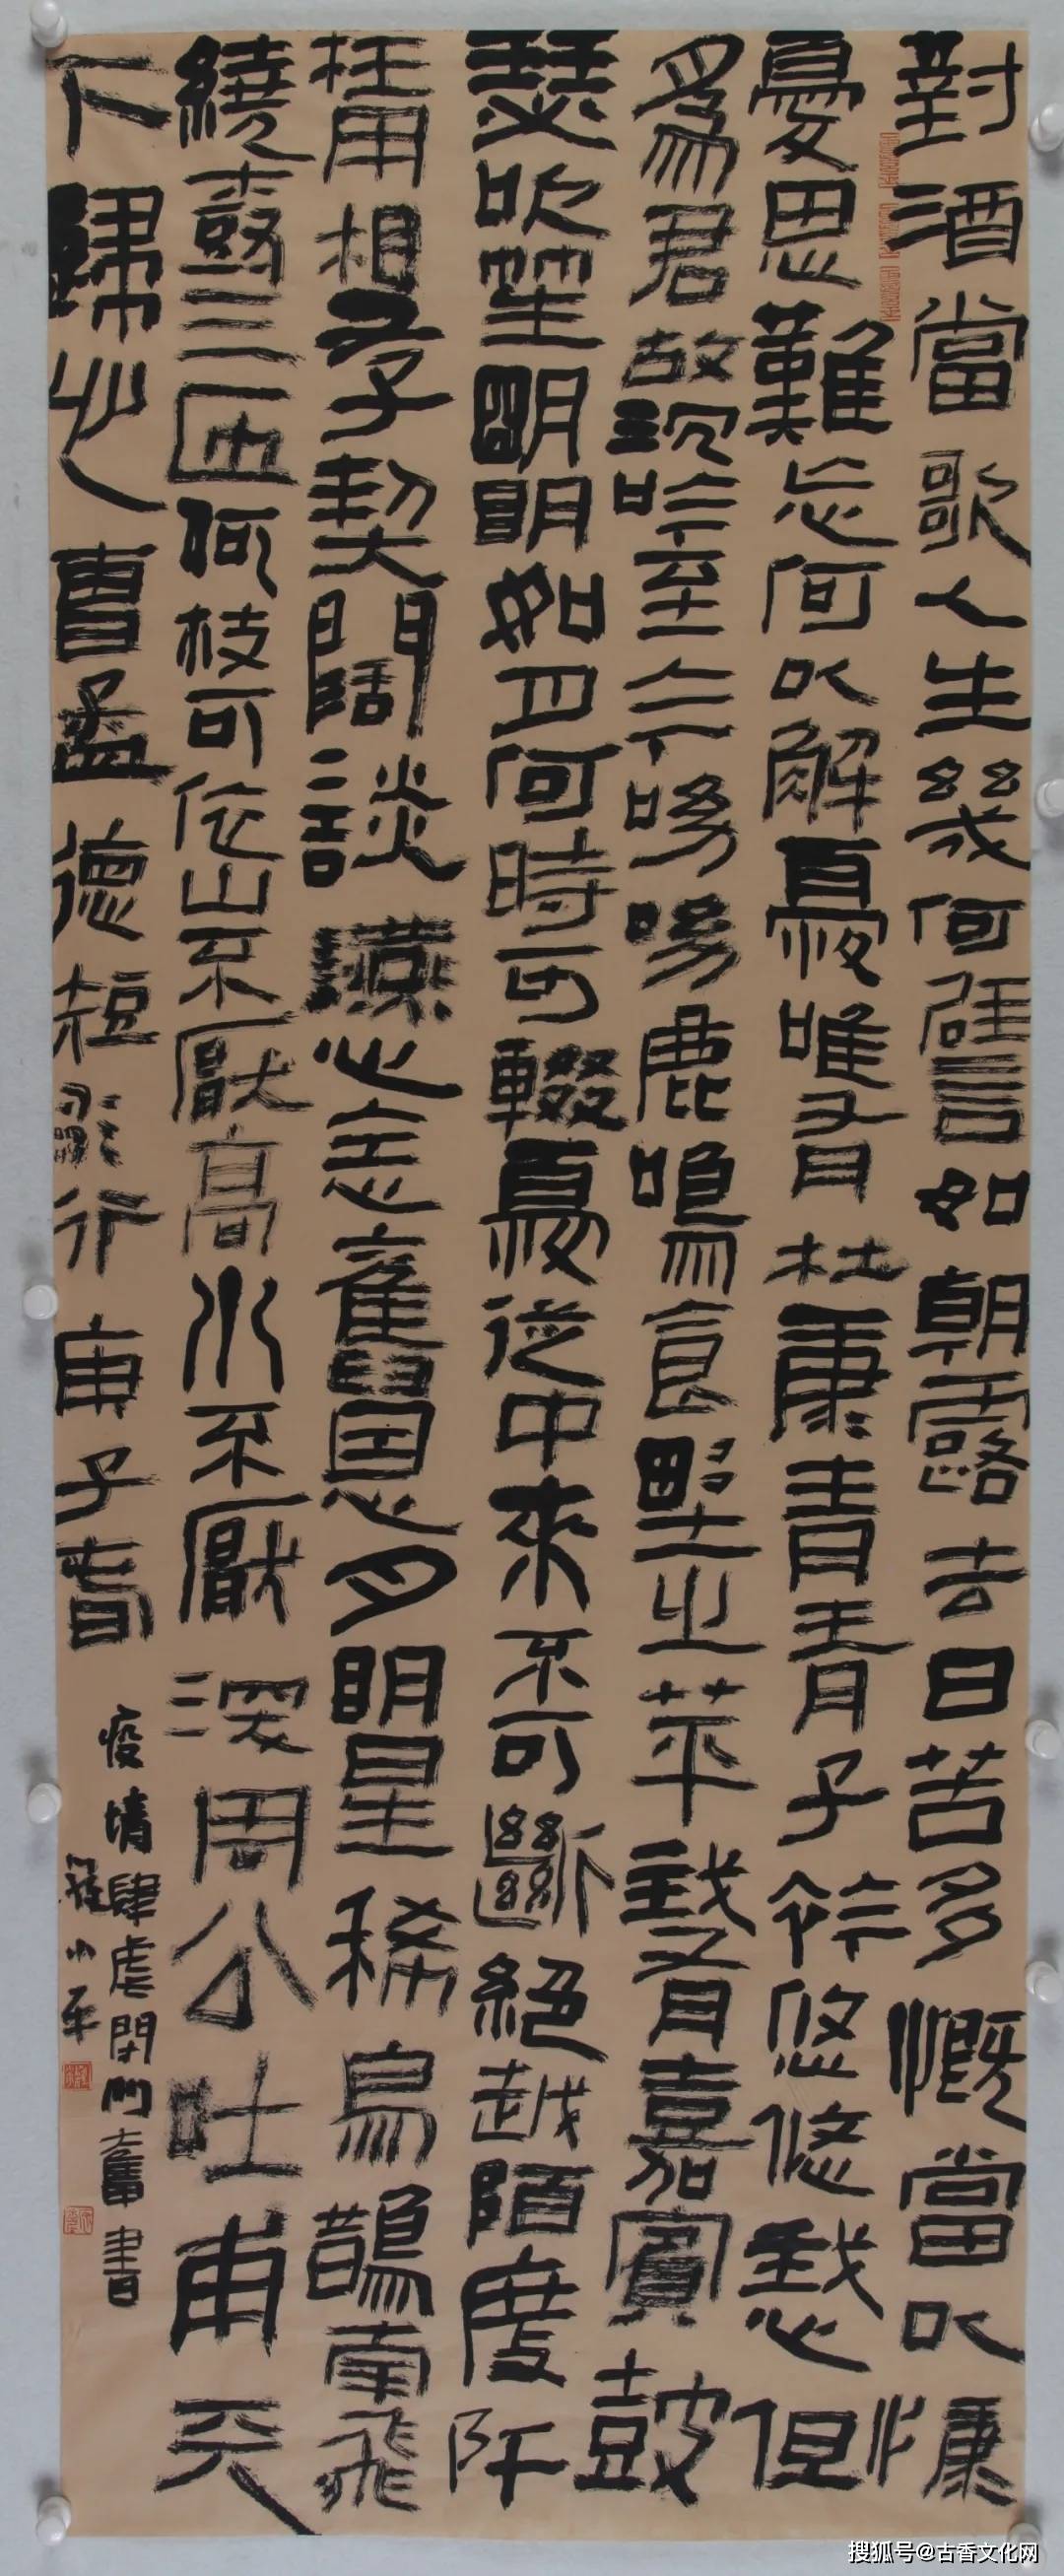 對酒當歌人生幾何譬如朝露去日苦多慨當以慷
憂思難忘何以解憂唯有杜康青青子衿悠悠我心但
為君故沉吟至今呦呦鹿鳴食野之苹我有嘉賓鼓
瑟吹笙明明如月何時可輟憂從中來不可斷絕越陌度阡
枉用相存契闊談讌心念舊恩月明星稀烏鵲南飛
繞樹三匝何枝可依山不厭高水不厭深周公吐甫天
下歸心曹孟德短歌行庚子春
疫情肆虐閉門奮書
小平
搜狐号@古香文化网